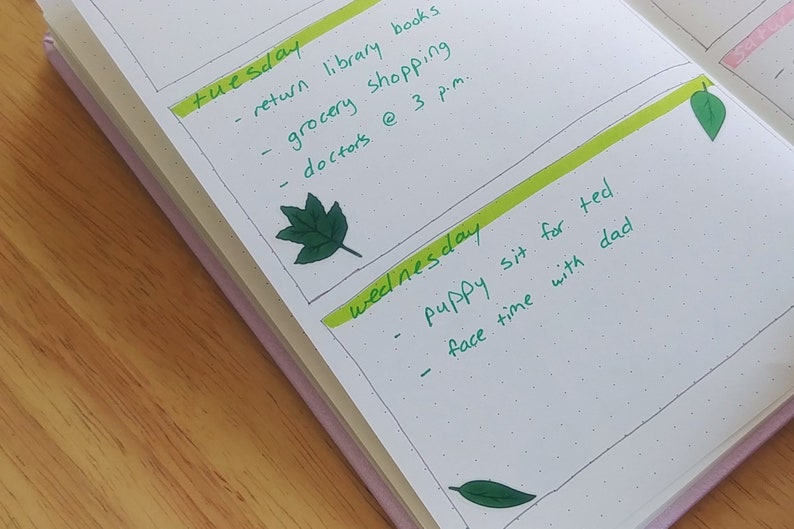 tuesday
- return library books
- grocery shopping
- doctors @ 3 p.m.
wednesday
- puppy sit for ted
- face time with dad